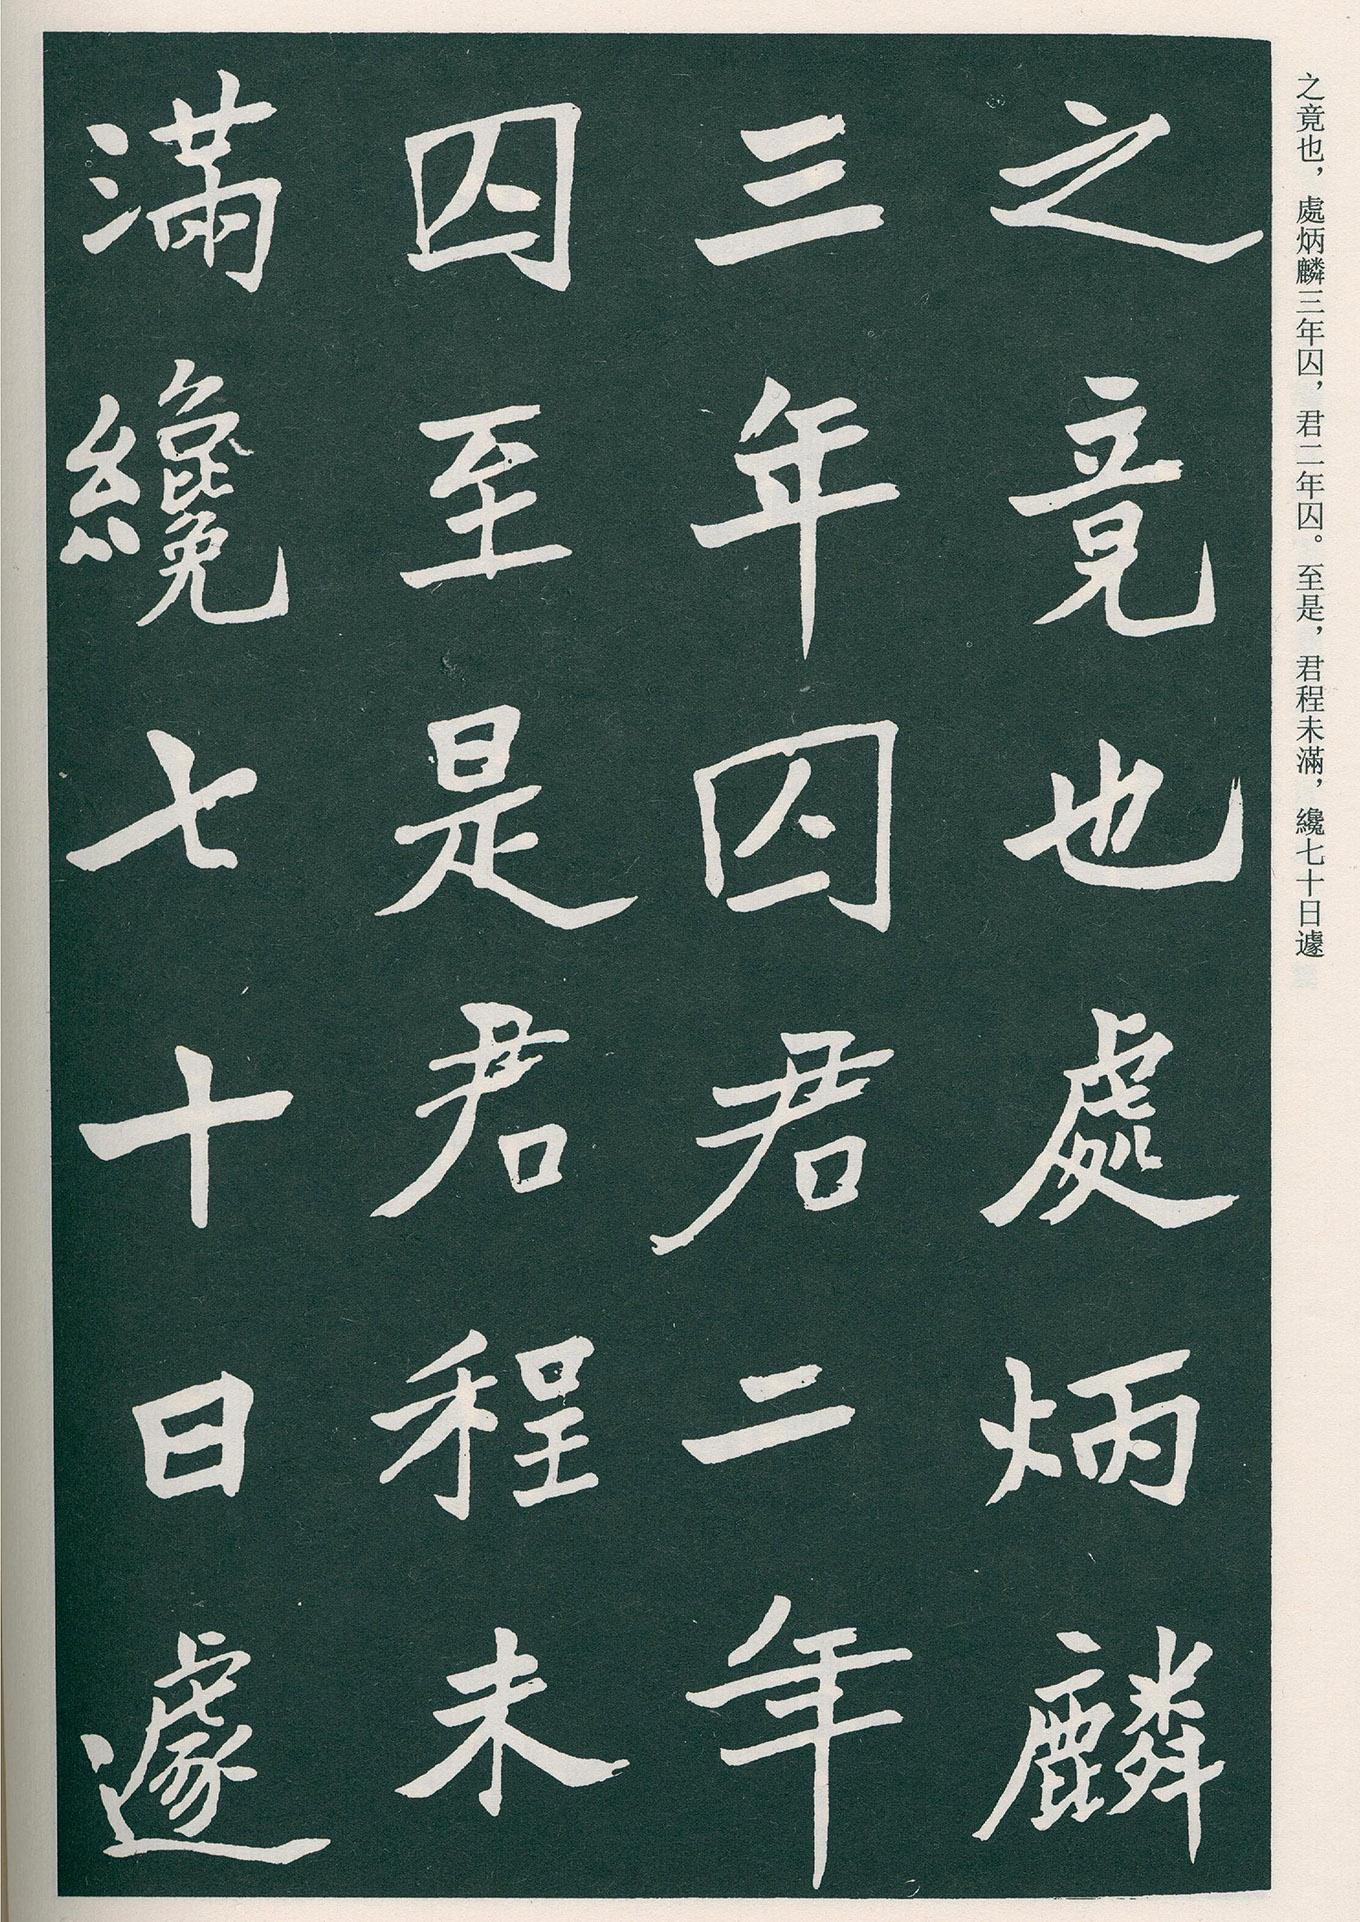 之竟也，處炳麟三年囚，君二年囚。至是，君程未滿，纔七十日遽
之竟也處炳麟
三年囚君二年
囚至是君程未
滿纔七十日遽